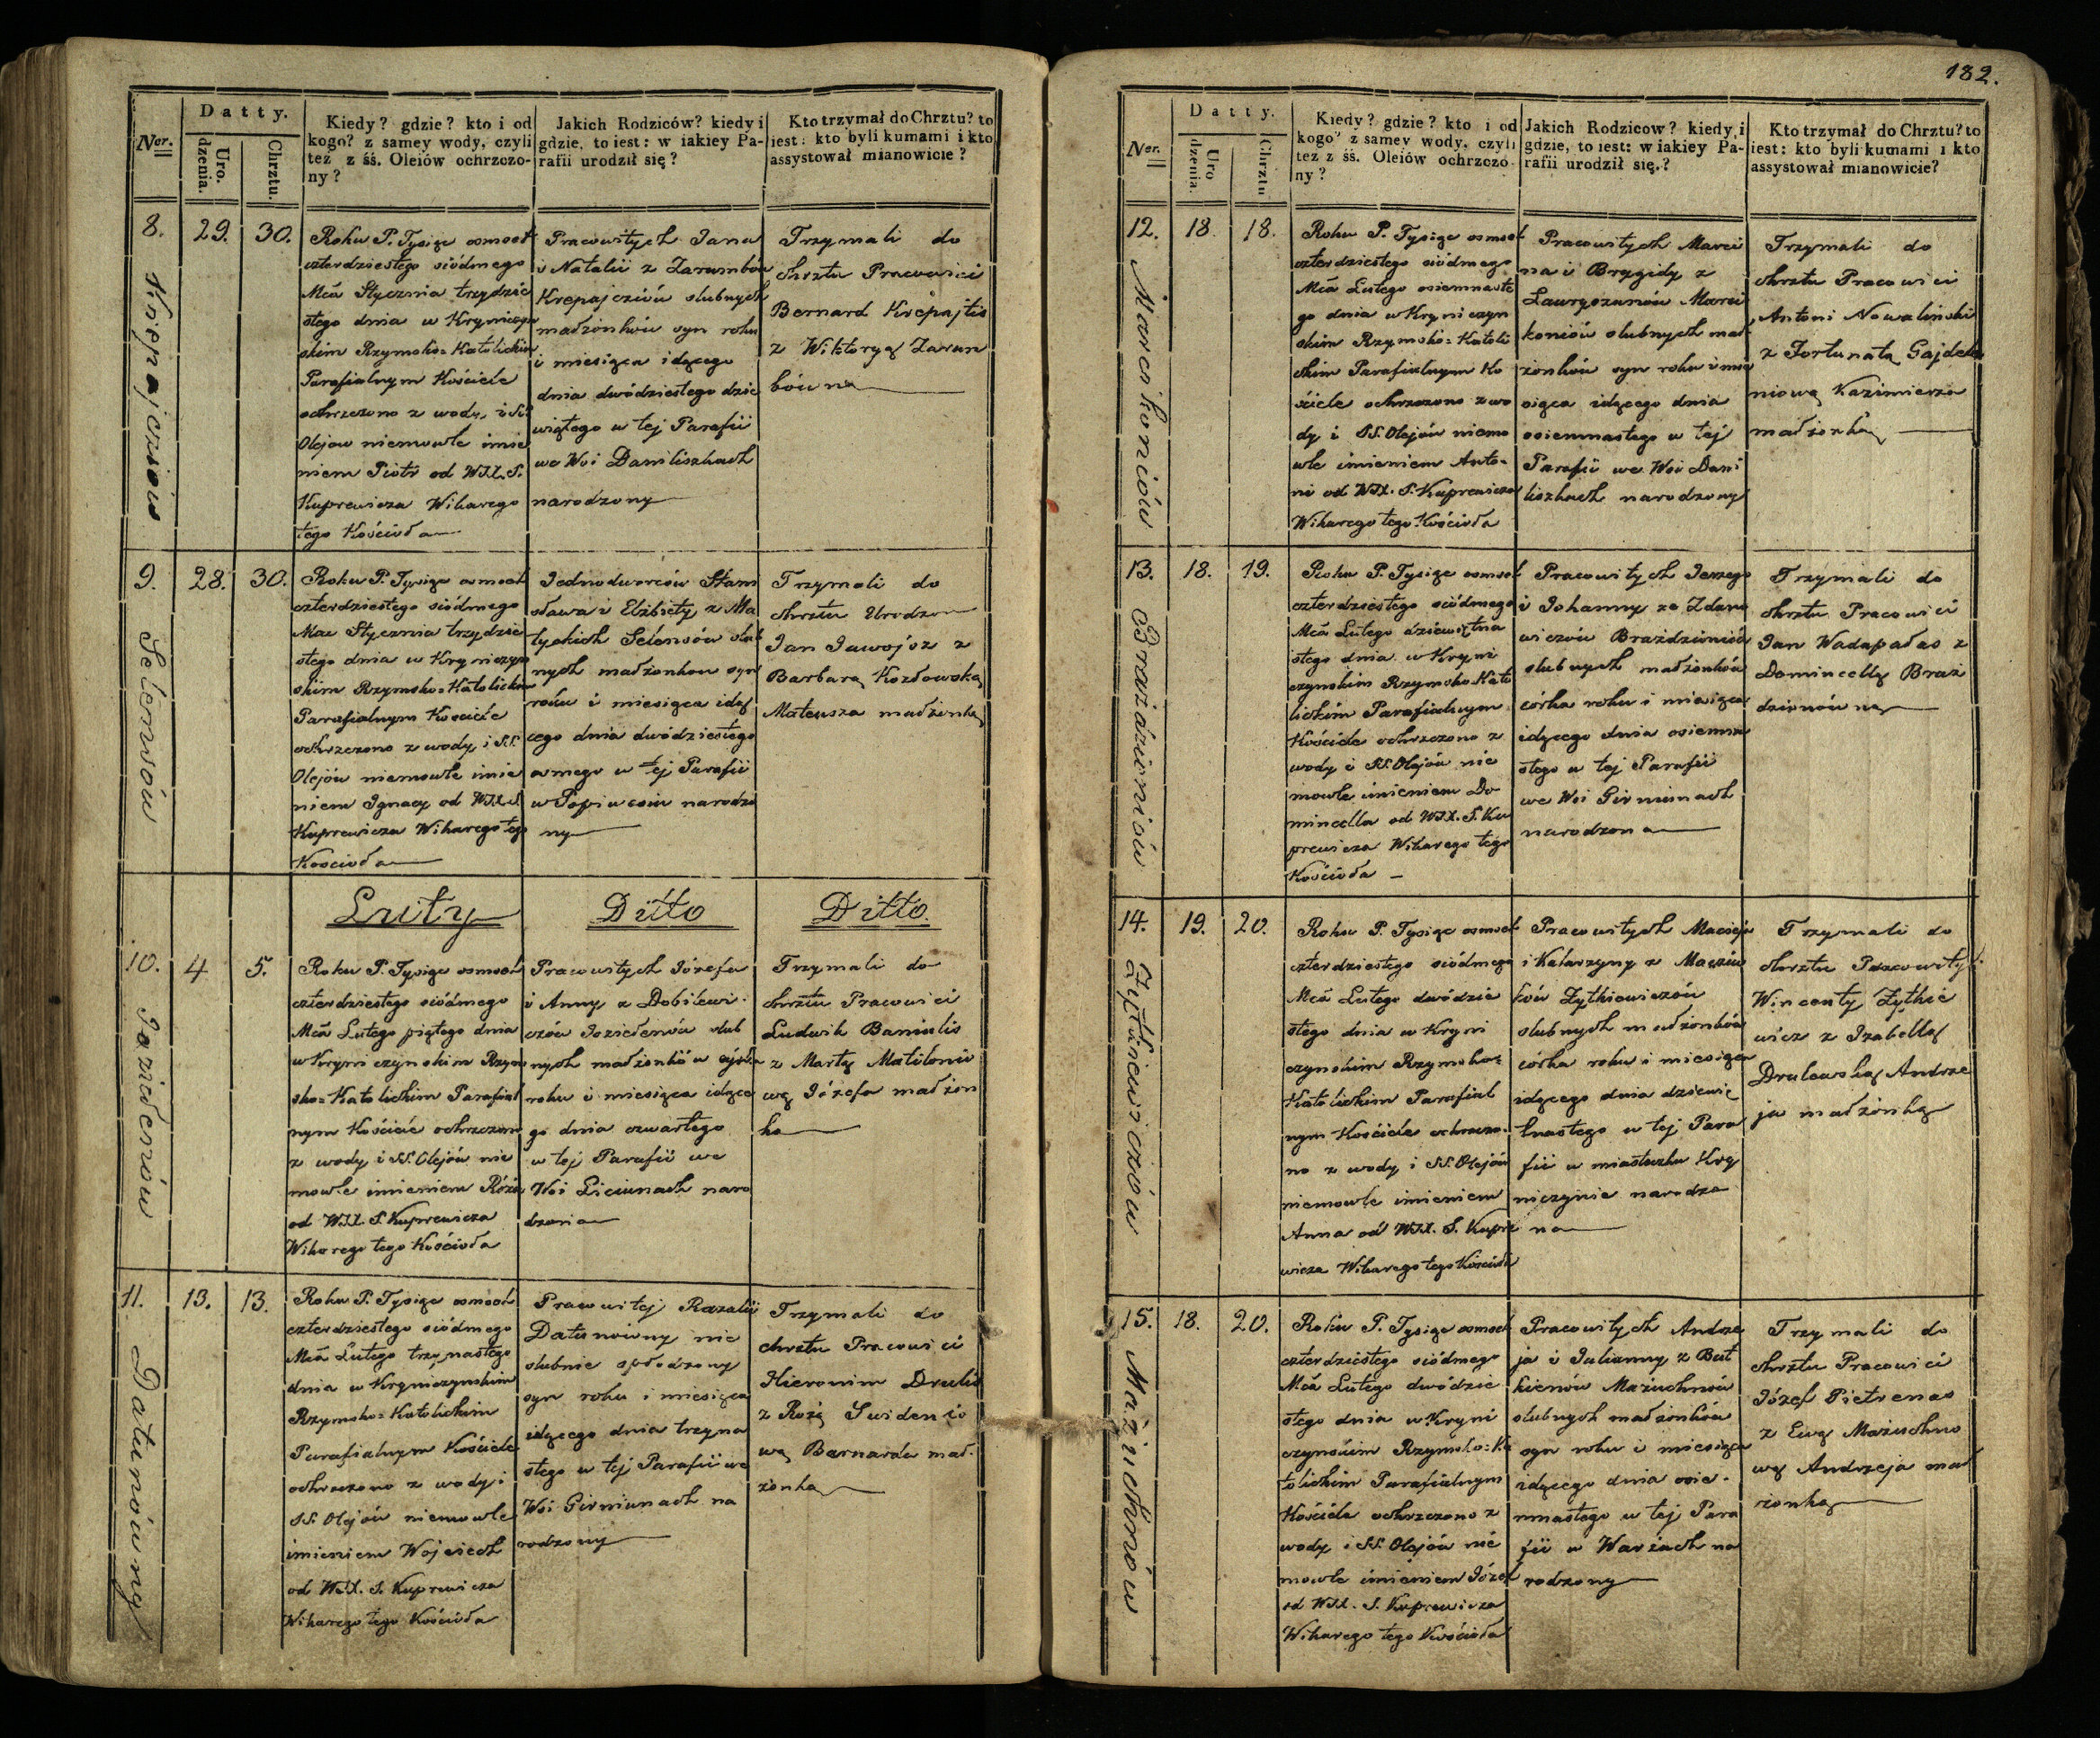 Ner.
Datty.
Uro.
dzenia.
Chrztu.
Kiedy? gdzie? kto i od
kogo? z samey wody, czyli
też z śś. Oleiów ochrzczo-
ny?
Jakich Rodziców? kiedy i
gdzie, to iest: w iakiey Pa-
rafii urodził się?
Kto trzymał do Chrztu? to
iest: kto byli kumami i kto
assystował mianowicie?
8.
29.
30.
Krepajcziów
Roku P. Tysiąc osmset
czterdziestego siódmego
Mca Stycznia trzydzie
stego dnia w Kryniczyn
skim Rzymsko=Katolickim
Parafialnym Kościele
ochrzczono z wody i SS.
Olejow niemowle imie
niem Piotr od WJX. S.
Kuprewicza Wikarego
tego Kościoła
Pracowitych Jana
i Natalii z Zarumbów
Krepajcziów slubnych
małżonków syn roku
i miesiąca idącego
dnia dwódziestego dzie
wiątego w tej Parafii
we Wsi Daniliszkach
narodzony
Trzymali do
chrztu Pracowici
Bernard Krepajtis
z Wiktoryą Zarum
bówna
9.
28.
30.
Selensów
Roku P. Tysiąc osmset
czterdziestego siódmego
Mca Stycznia trzydzie
stego dnia w Kryniczyn
skim Rzymsko=Katolickim
Parafialnym Kosciele
ochrzczono z wody i SS.
Olejów niemowle imie
niem Ignacy od WJX S.
Kuprewicza Wikarego tego
Kościoła
Jednodworców Stani
sława i Elżbiety z Ma
tyckich Selensów slub
nych małżonkow syn
roku i miesiąca idą
cego dnia dwódziestego
osmego w tej Parafii
w narodzo
ny
Trzymali do
chrztu Urodzo
Jan Jawojsz z
Barbarą Kozłowską
Mateusza małżonką
Luty
Ditto
Ditto.
10.
4
5.
Jozielenów
Roku P. Tysiąc osmset
czterdziestego siódmego
Mca Lutego piątego dnia
w Kryniczynskim Rzym
sko=Katolickim Parafial
nym Kościele ochrzczono
z wody i SS. Olejów nie
mowle imieniem Róża
od WJX. S. Kuprewicza
Wikarego tego Kościoła
Pracowitych Józefa
i Anny z Dobilewi-
czów Jozielenów slub
nych małżonków córka
roku i miesiąca idące
go dnia czwartego
w tej Parafii we
Wsi Liciunach naro
dzona
Trzymali do
chrztu Pracowici
Ludwik Baniulis
z Martą Matilonio
wą Józefa małżon
ka
11.
13.
13.
Datunówny
Roku P. Tysiąc osmset
czterdziestego siódmego
Mca Lutego trzynastego
dnia w Kryniczynskim
Rzymsko=Katolickim
Parafialnym Kościele
ochrzczono z wody i
SS. Olejów niemowle
imieniem Wojciech
od WJX. S. Kuprewicza
Wikarego tego Kościoła
Pracowitej Rozalii
Datunowny nie
slubnie spłodzony
syn roku i miesiąca
idącego dnia trzyna
stego w tej Parafii we
Wsi Girniunach na
rodzony
Trzymali do
chrztu Pracowici
Hieronim Drulis
z Rożą Swidenio
wą Barnarda mał-
żonka
182.
Ner.
Datty.
Uro
dzenia.
Chrztu
Kiedy? gdzie? kto i od
kogo? z samey wody, czyli
też z śś. Oleiów ochrzczo-
ny?
Jakich Rodzicow? kiedy i
gdzie, to iest: w iakiey Pa-
rafii urodził się.?
Kto trzymał do Chrztu? to
iest: kto byli kumami i kto
assystował mianowicie?
12.
18.
18.
Marcikoniów
Roku P. Tysiąc osmset
czterdziestego siódmego
Mca Lutego osiemnaste
go dnia w Kryniczyn
skim Rzymsko=Katoli
ckim Parafialnym Ko
ściele ochrzczono z wo
dy i SS. Olejów niemo
wle imieniem Anto-
ni od WJX. S. Kuprewicza
Wikarego tego Kościoła
Pracowitych Marci
na i Brygidy z
Ławryszanów Marci
koniów slubnych mał
żonków syn roku i mie
siąca idącego dnia
osiemnastego w tej
Parafii we Wsi Dani
liszkach narodzony
Trzymali do
chrztu Pracowici
Antoni Nowaliński
z Fortunatą Gajdela
niową Kazimierza
małżonką
13.
18.
19.
Brażdzioniów
Roku P. Tysiąc osmset
czterdziestego siódmego
Mca Lutego dziewiętna
stego dnia w Kryni
czynskim Rzymsko Kato
lickim Parafialnym
Kościele ochrzczono z
wody i SS. Olejów nie
mowle imieniem Do
mincella od WJX. S. Ku
prewicza Wikarego tego
Kościoła
Pracowitych Jerzego
i Johanny ze Zdano
wiczów Brażdzioniów
slubnych małżonków
córka roku i miesiąca
idącego dnia osiemna
stego w tej Parafii
we Wsi Girniunach
narodzona
Trzymali do
chrztu Pracowici
Jan Wadapałas z
Domincellą Braż
dzionówną
14.
19.
20.
Żytkiewiczów
Roku P. Tysiąc osmset
czterdziestego siódmego
Mca Lutego dwódzie
stego dnia w Kryni
czynskim Rzymsko=
Katolickim Parafial
nym Kościele ochrzczo-
no z wody i SS. Olejów
niemowle imieniem
Anna od WJX. S. Kupre
wicza Wikarego tego Kościoła
Pracowitych Macieja
i Katarzyny z Maziu
ków Żytkiewiczów
slubnych małżonków
córka roku i miesiąca
idącego dnia dziewię
tnastego w tej Para
fii w miasteczku Kry
niczynie narodzo
na
Trzymali do
chrztu Pracowity
Wincenty Żytkie
wicz z Izabellą
Drulewską Andrze
ja małżonką
15.
18.
20.
Mażiuchnów
Roku P. Tysiąc osmset
czterdziestego siódmego
Mca Lutego dwódzie
stego dnia w Kryni
czynskim Rzymsko=Ka
tolickim Parafialnym
Kościele ochrzczono z
wody i SS. Olejów nie
mowle imieniem Józef
od WJX. S. Kuprewicza
Wikarego tego Kościoła
Pracowitych Andrze
ja i Julianny z But
kienów Mażiuchnów
slubnych małżonków
syn roku i miesiąca
idącego dnia osie-
mnastego w tej Para
fii w Wariach na
rodzony
Trzymali do
chrztu Pracowici
Józef Pietrenas
z Ewą Mażiuchno
wą Andrzeja mał
żonką